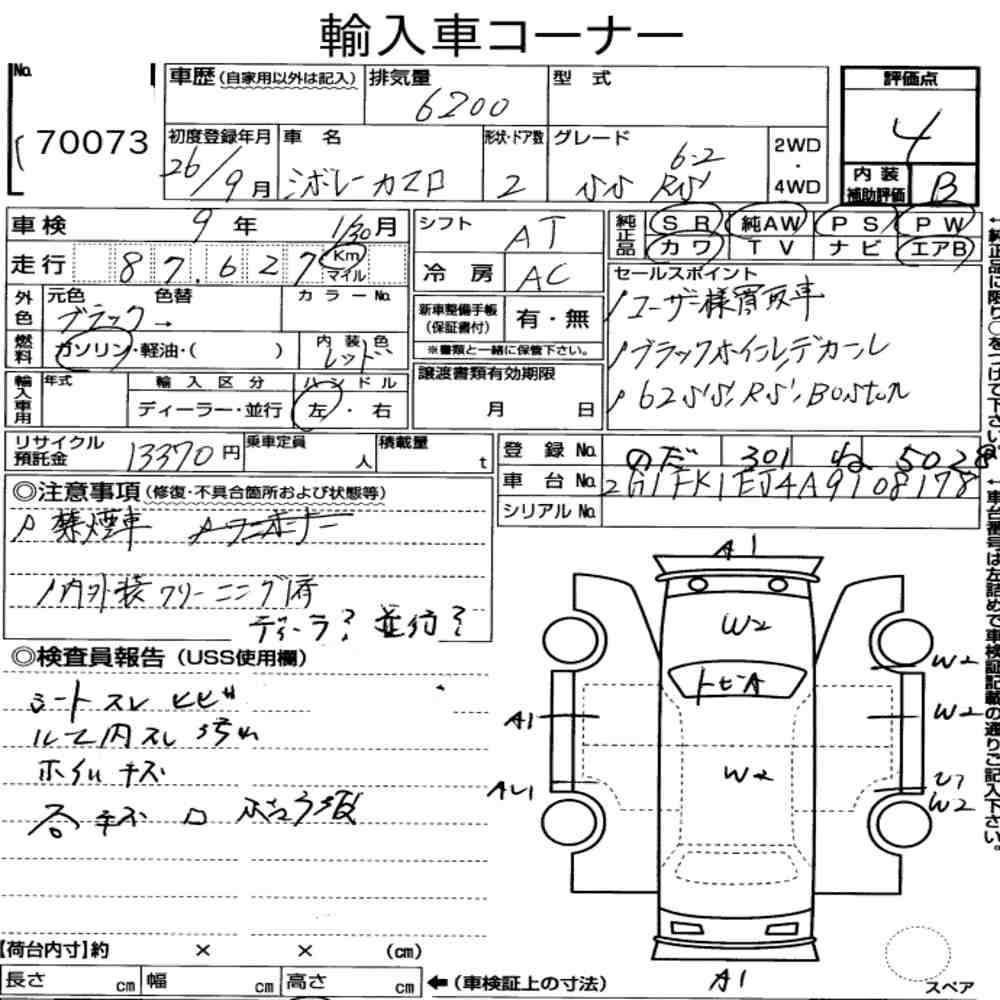 輸入車コーナー
No.
70073
車歴(自家用以外は記入)
排気量
6200
型式
評価点
4
初度登録年月
26/9月
車名
シボレーカマロ
形状・ドア数
2
グレード
6.2
SS RS
2WD
・
4WD
内装
補助評価
B
車検 9年 1/30月
走行 87.627 Km マイル
シフト
AT
冷房
AC
純正品
SR 純AW PS PW
カワ TV ナビ エアB
外色
元色 色替
ブラック→
カラーNo.
燃料
ガソリン・軽油・( )
内装色
レッド
新車整備手帳
(保証書付)
有・無
※書類と一緒に保管下さい。
セールスポイント
ユーザー様買取車
ブラックホイールデカール
62SS, RS, Boston
輸入車用
年式
輸入区分
ディーラー・並行
ハンドル
左・右
譲渡書類有効期限
月 日
リサイクル
預託金
13370円
乗車定員
人
積載量
t
登録No. のだ 301 ね 5028
車台No. 2G1FK1EJ4A9108178
シリアルNo.
◎注意事項(修復・不具合箇所および状態等)
禁煙車 ワンオーナー
内外装クリーニング済
ディーラ? 並行?
◎検査員報告(USS使用欄)
シートスレ ヒビ
ルーフ内スレ 汚れ
ホイルキズ
A1
W2
トビA
W2
W2
A1
W2
AU1
W2
A1
【荷台内寸】約 × × (cm)
長さ cm 幅 cm 高さ cm
←(車検証上の寸法)
スペア
←純正品に限り○をつけて下さい。
←車台番号は左詰めで車検証記載の通りご記入下さい。